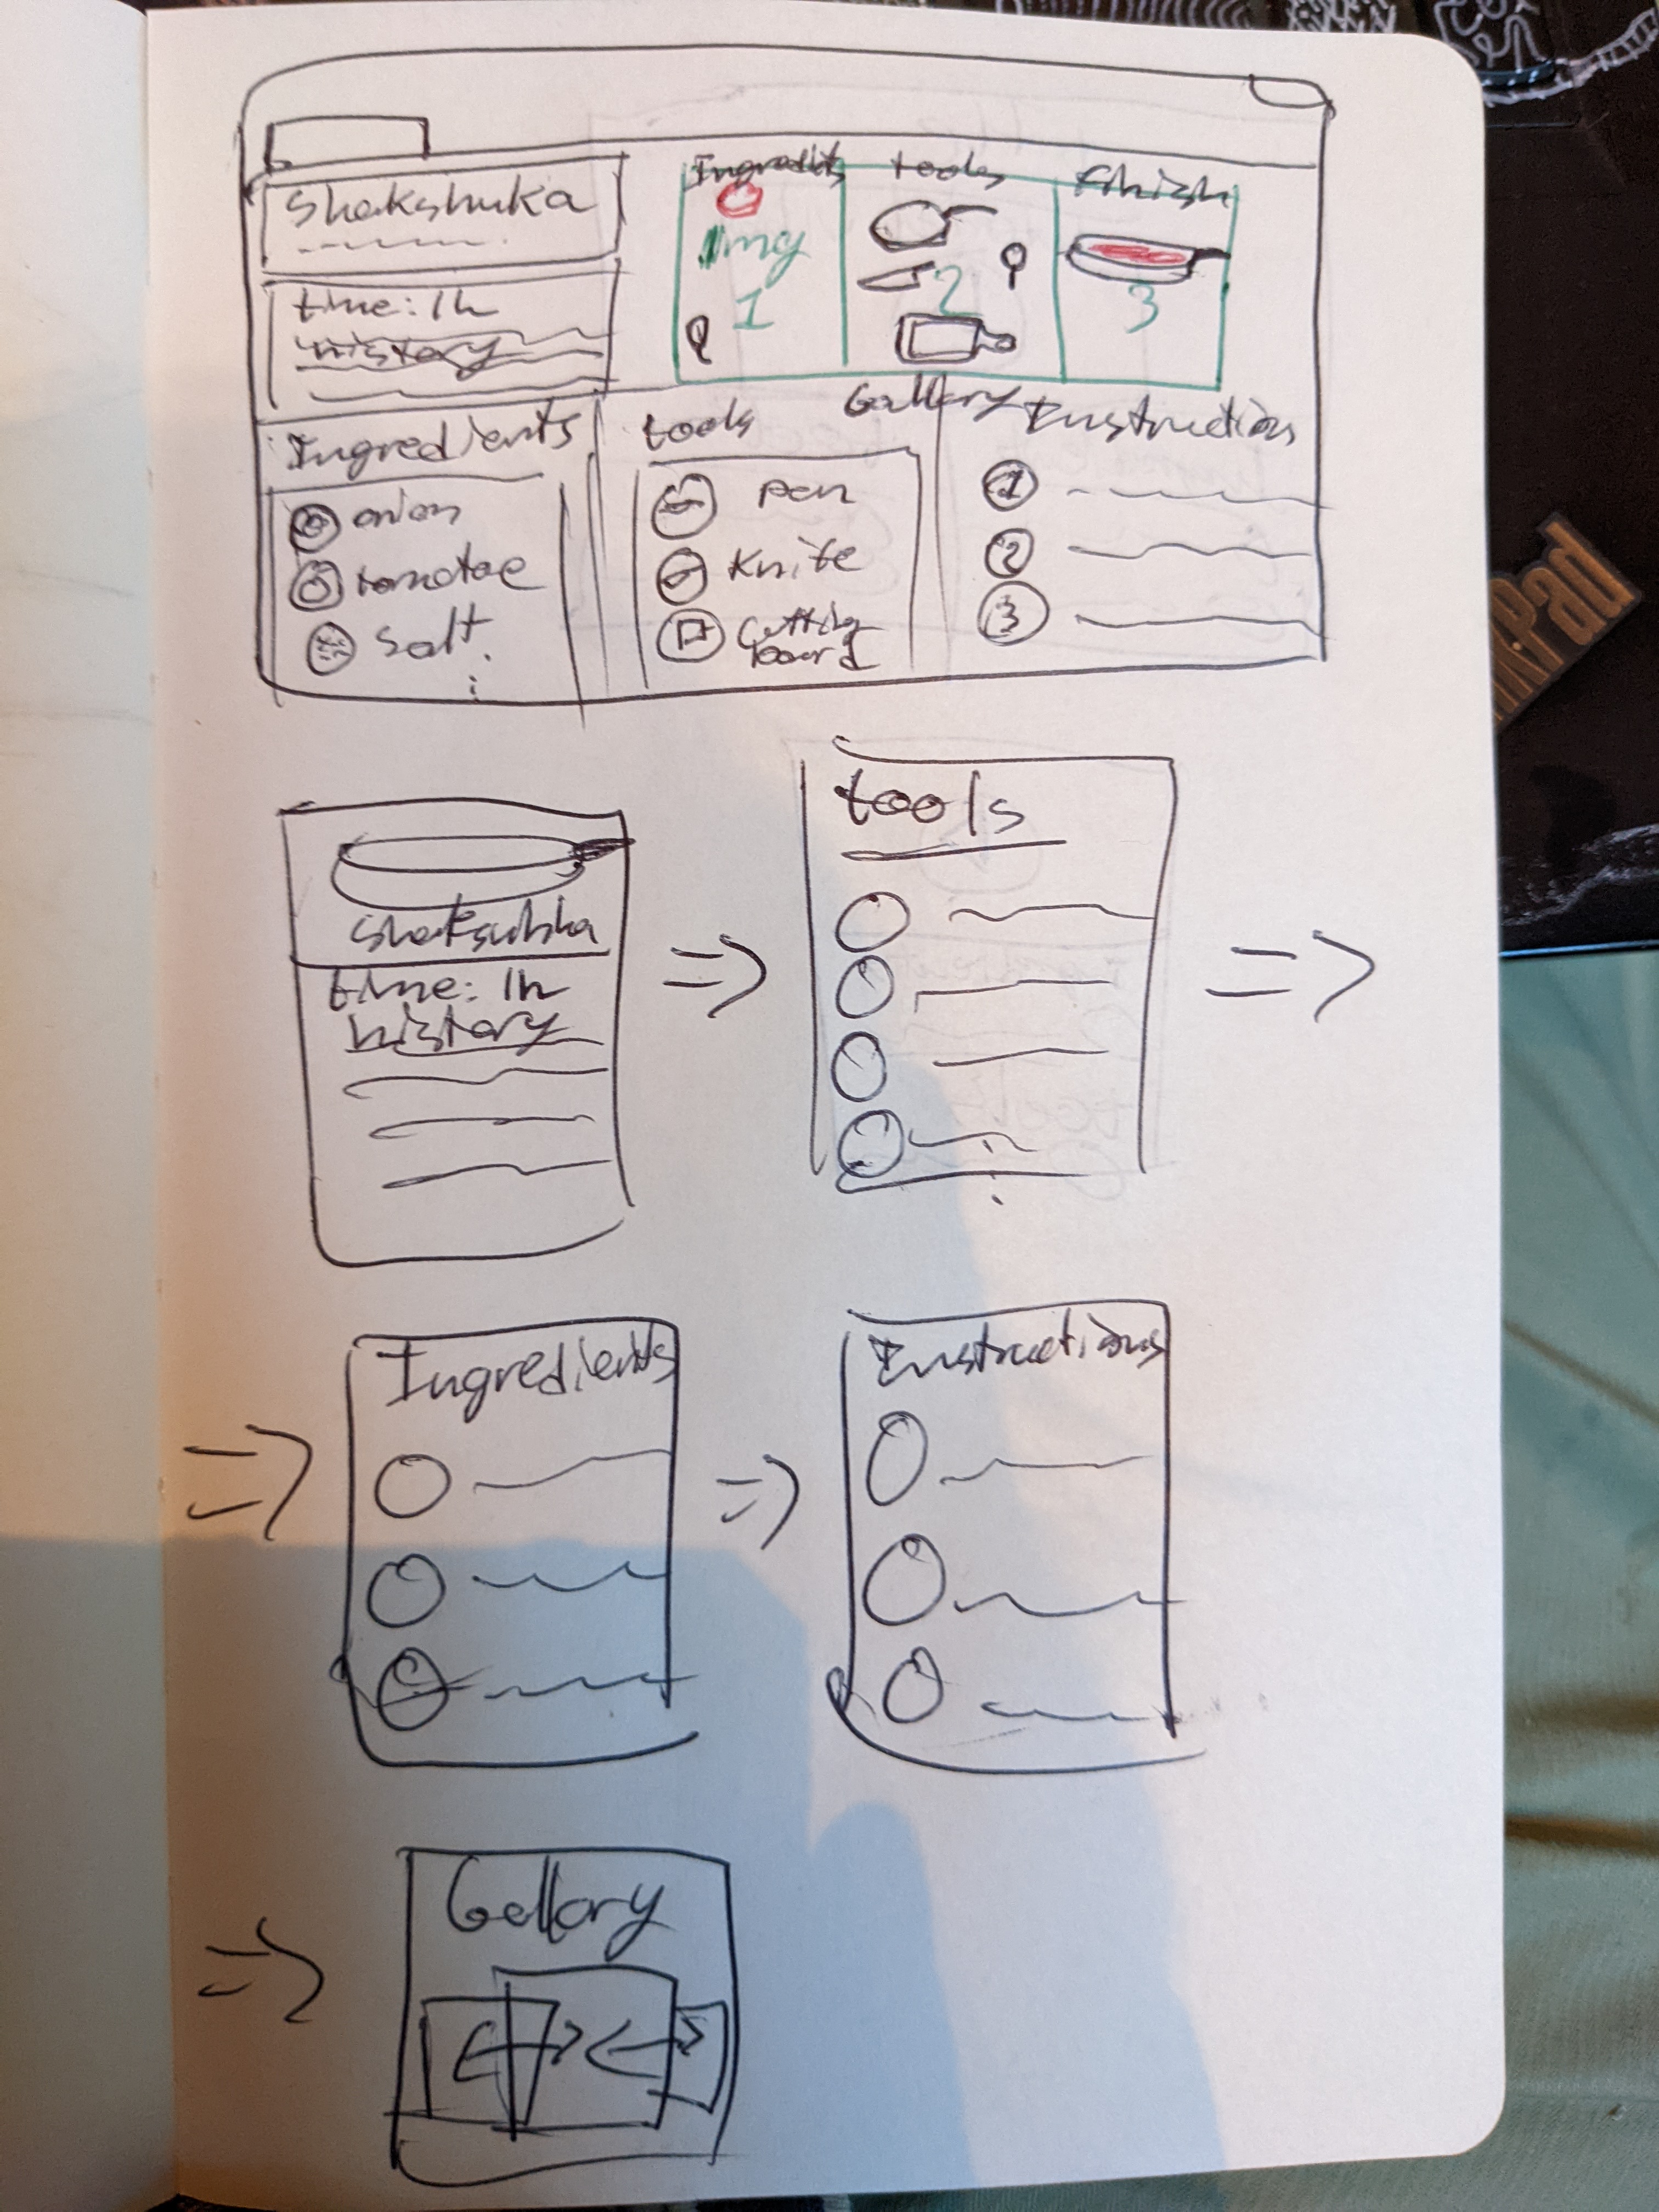 Shakshuka
time: 1h
history
Ingredients
tools
finish
Img
1
2
3
Gallery
Ingredients
onion
tomatoe
Salt
tools
pan
Knife
Cutting
board
Instruction
1
2
3
Pad
Shaksuhka
time: 1h
history
tools
Ingredients
Instructions
Gallory